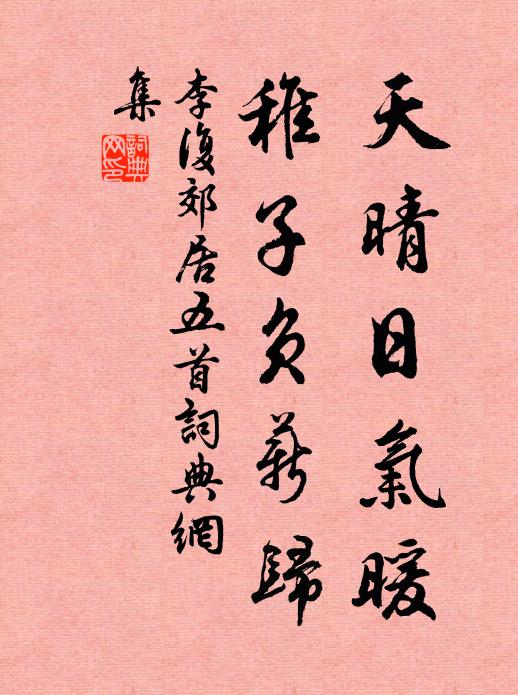 天晴日氣暖
稚子負薪歸
李復郊居五首詞典網
集
詞典
网印